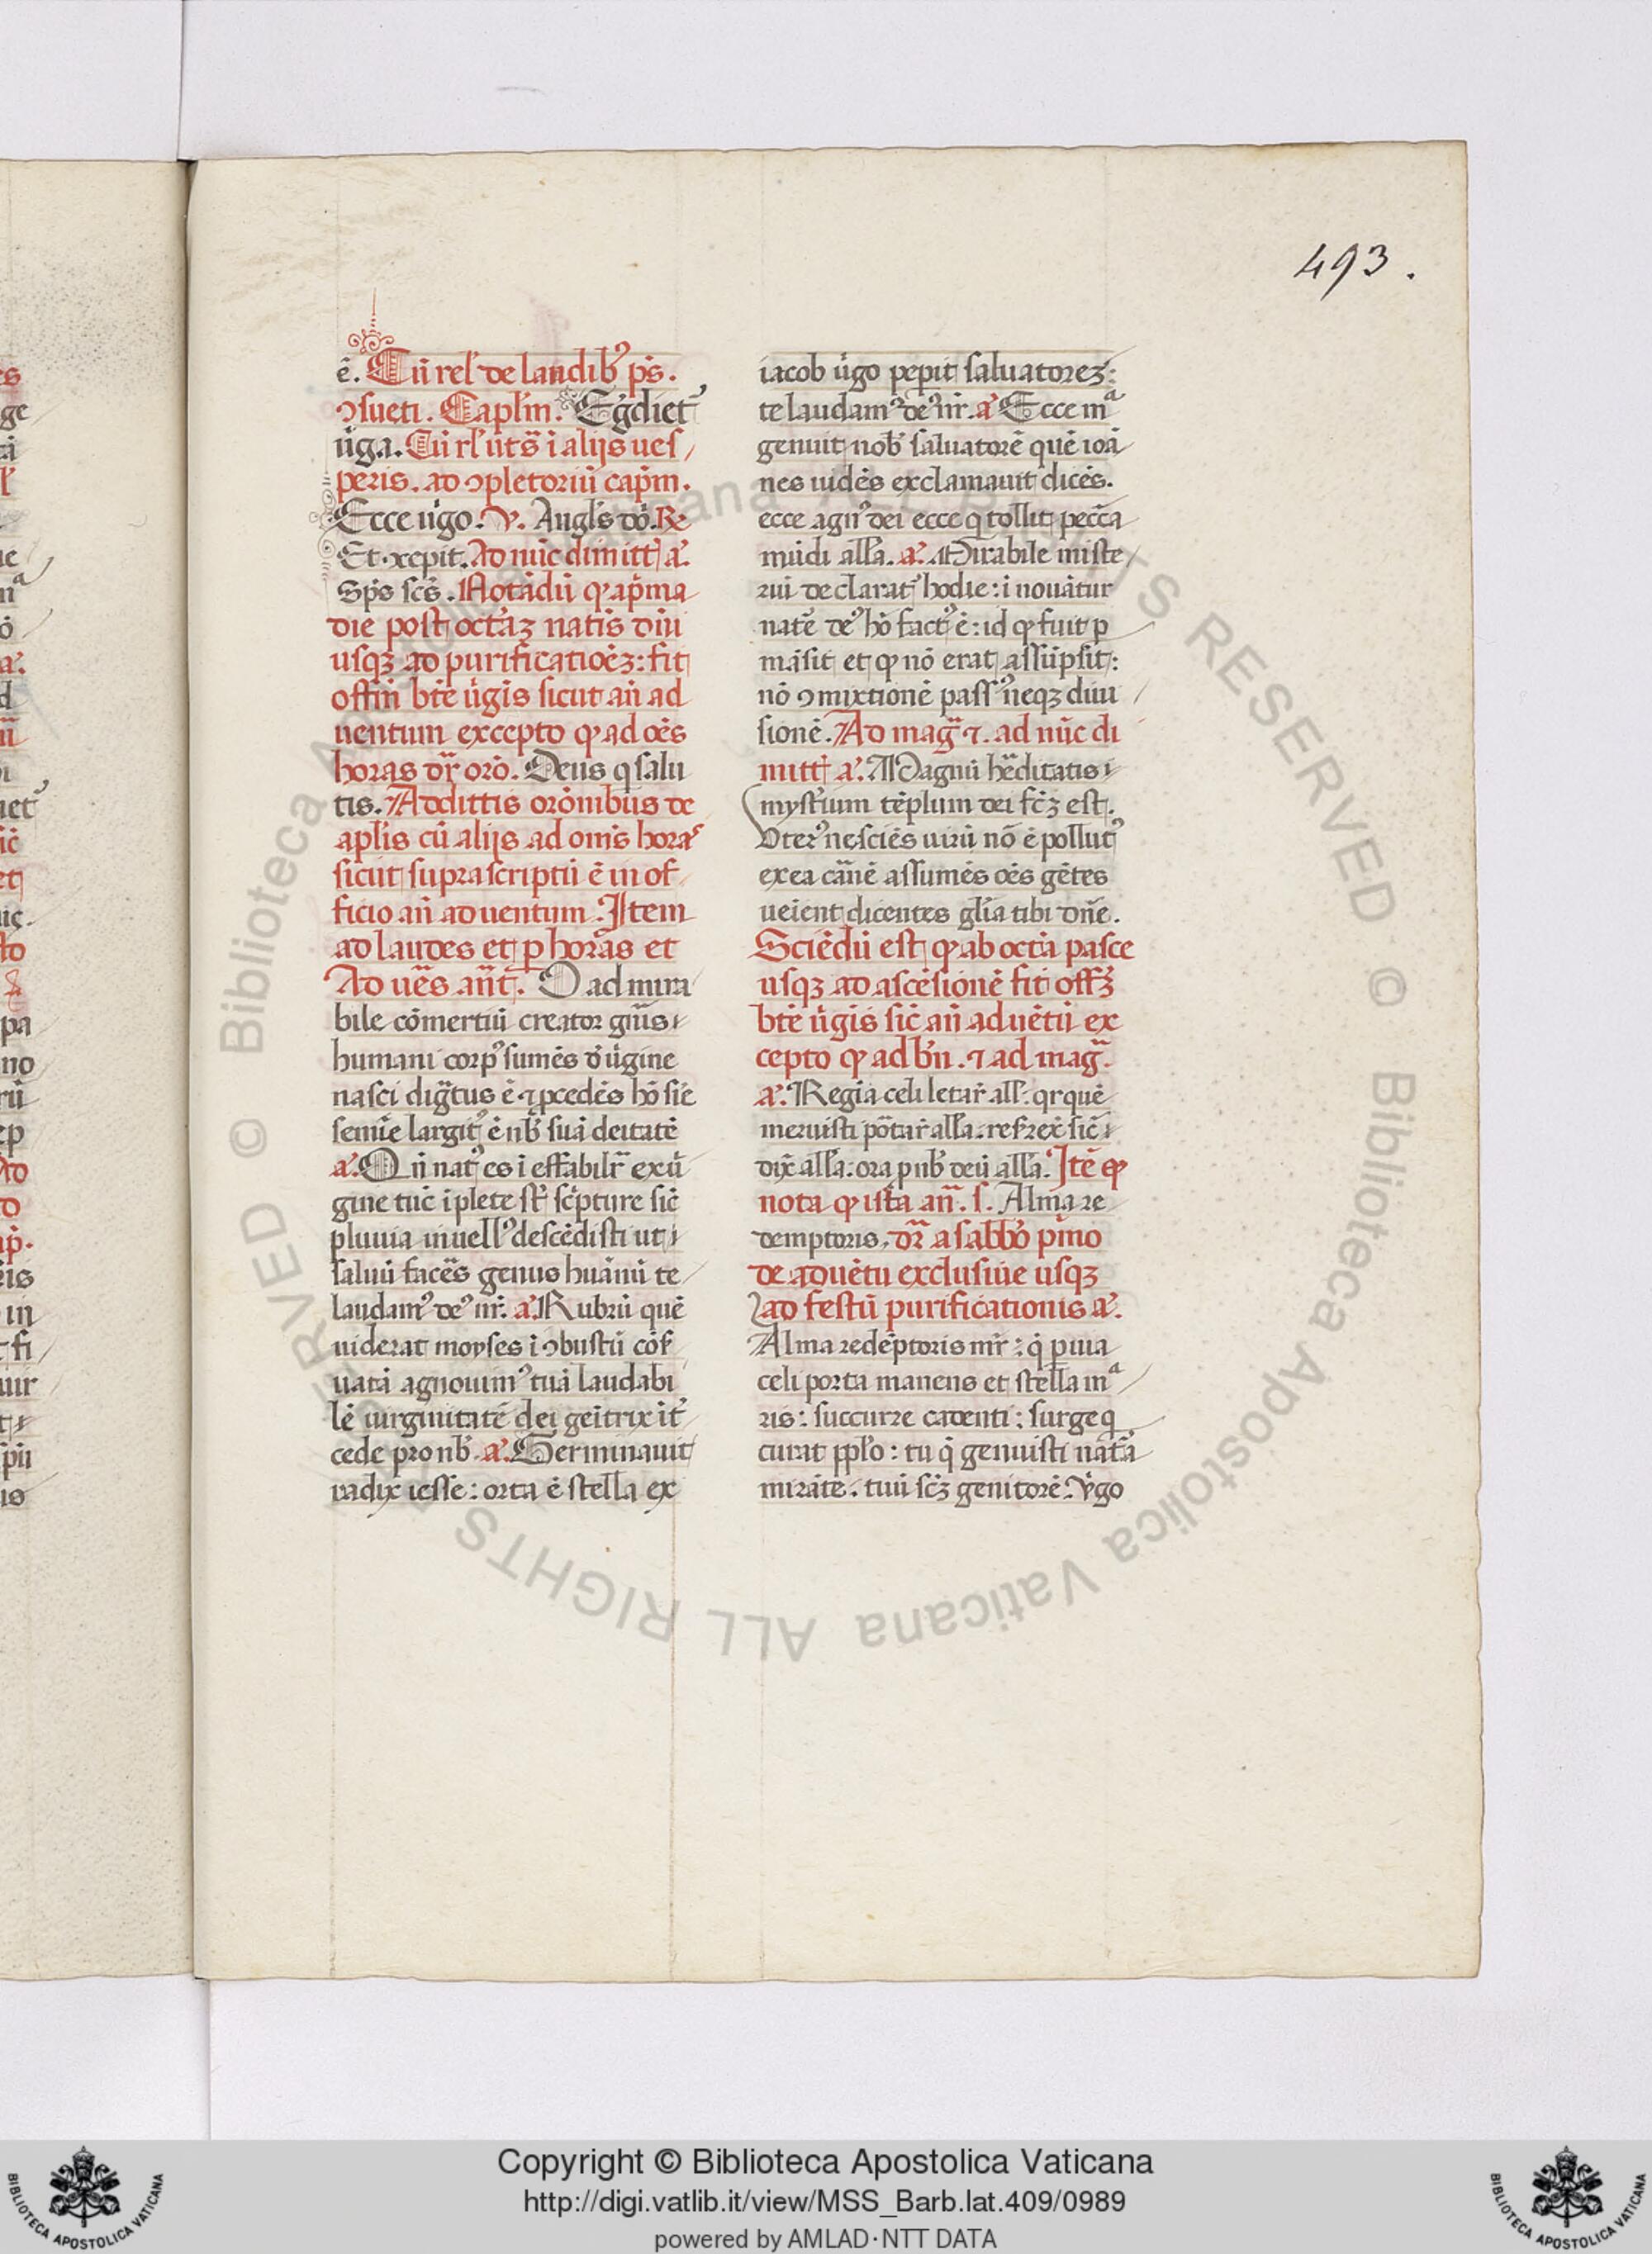 493.
ē. Cū rel' de laudib' ps.
ꝯsueti. Capl'm. Egdiet'
ūga. Cū rl' uts i alijs ues
peris. ad ꝯpletoriū capm.
Ecce ūgo. V. Angl's dō. R
Et ꝯcepit. Ad nūc dimitt a.
Sps scs. Notādū ꝙ a pma
die post octaz natis dnī
usqz ad purificatioēz: fit
offm bte ūgis sicut an ad
uentum excepto ꝙ ad oēs
horas dr orō. Deus q salu
tis. Addittis orōnibus de
aplis cū alijs ad omis horas
sicut suprascriptū ē in of
ficio an aduentum. Item
ad laudes et p horas et
Ad ues ant. O ad mira
bile cōmertiū creator gnis
humani corp' sumēs d' ūgine
nasci digtus ē ⁊ pcedēs hō sie
semīe largit' ē nb' suā deitatē
a. Qn nat' es i effabilr ex ū
gine tūc iplete st' scpture sic
pluuia in uell' descēdisti ut
saluū facēs genus huānū te
laudam' de' nr. a. Rubrū quē
uiderat moyses i ꝯbustū cōs
uatā agnouim' tuā laudabi
lē uirginitatē dei geitrix it'
cede pro nb'. a. Germinauit
radix iesse: orta ē stella ex
iacob ūgo peperit saluatorez:
te laudam' de' nr. a. Ecce ma
genuit nob' saluatorē quē ioā
nes uidēs exclamauit dicēs.
ecce agn' dei ecce q tollit peccā
mūdi alla. a. Mirabile miste
riū declarat' hodie: i nouātur
natē de' hō fact' ē: id ꝙ fuit p
māsit et ꝙ nō erat assūpsit:
nō ꝯmixtionē pass' neqz diui
sionē. Ad mag ⁊. ad nūc di
mitt a. Magnū hēditatis
mysterium tēplum dei fcz est.
Vter' nesciēs uirū nō ē pollut'
ex ea carnē assumēs oēs gētes
ueient dicentes glia tibi dne.
Sciēdū est ꝙ ab octā pasce
usqz ad ascēsionē fit offz
bte ūgis sic an aduētū ex
cepto ꝙ ad bn. ⁊ ad mag.
a. Regia celi letar all. qr quē
meruisti pōtar alla. resrex sic
dix alla. ora p nb' deū alla. Itē ꝙ
nota ꝙ ista an. s. Alma re
demptoris, dr a sabbo pmo
de aduētu exclusiue usqz
ad festū purificationis a.
Alma redēptoris mr: q puia
celi porta manens et stella ma
ris: succurre cadenti: surge q
curat pplo: tu q genuisti natā
mirāte. tuū scz genitorē. Vgo
Copyright © Biblioteca Apostolica Vaticana
http://digi.vatlib.it/view/MSS_Barb.lat.409/0989
powered by AMLAD·NTT DATA